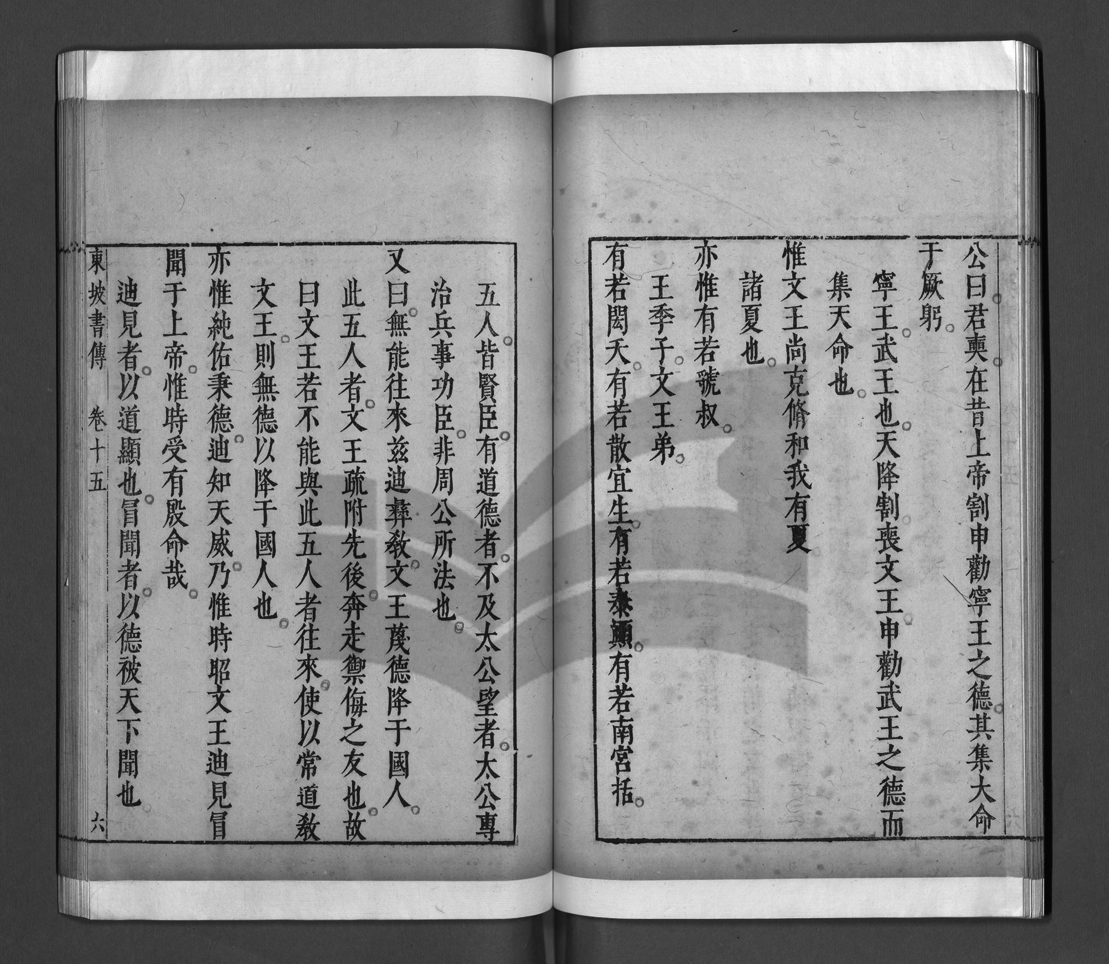 公曰君奭在昔上帝割申勸寧王之德其集大命
于厥躬
寧王武王也天降割喪文王申勸武王之德而
集天命也
惟文王尚克脩和我有夏
諸夏也
亦惟有若虢叔
王季子文王弟
有若閎夭有若散宜生有若泰顚有若南宮括
五人皆賢臣有道德者不及太公望者太公專
治兵事功臣非周公所法也
又曰無能往來兹迪彝敎文王蔑德降于國人
此五人者文王疏附先後奔走禦侮之友也故
曰文王若不能與此五人者往來使以常道敎
文王則無德以降于國人也
亦惟純佑秉德迪知天威乃惟時昭文王迪見冒
聞于上帝惟時受有殷命哉
迪見者以道顯也冒聞者以德被天下聞也
東坡書傳 卷十五 六